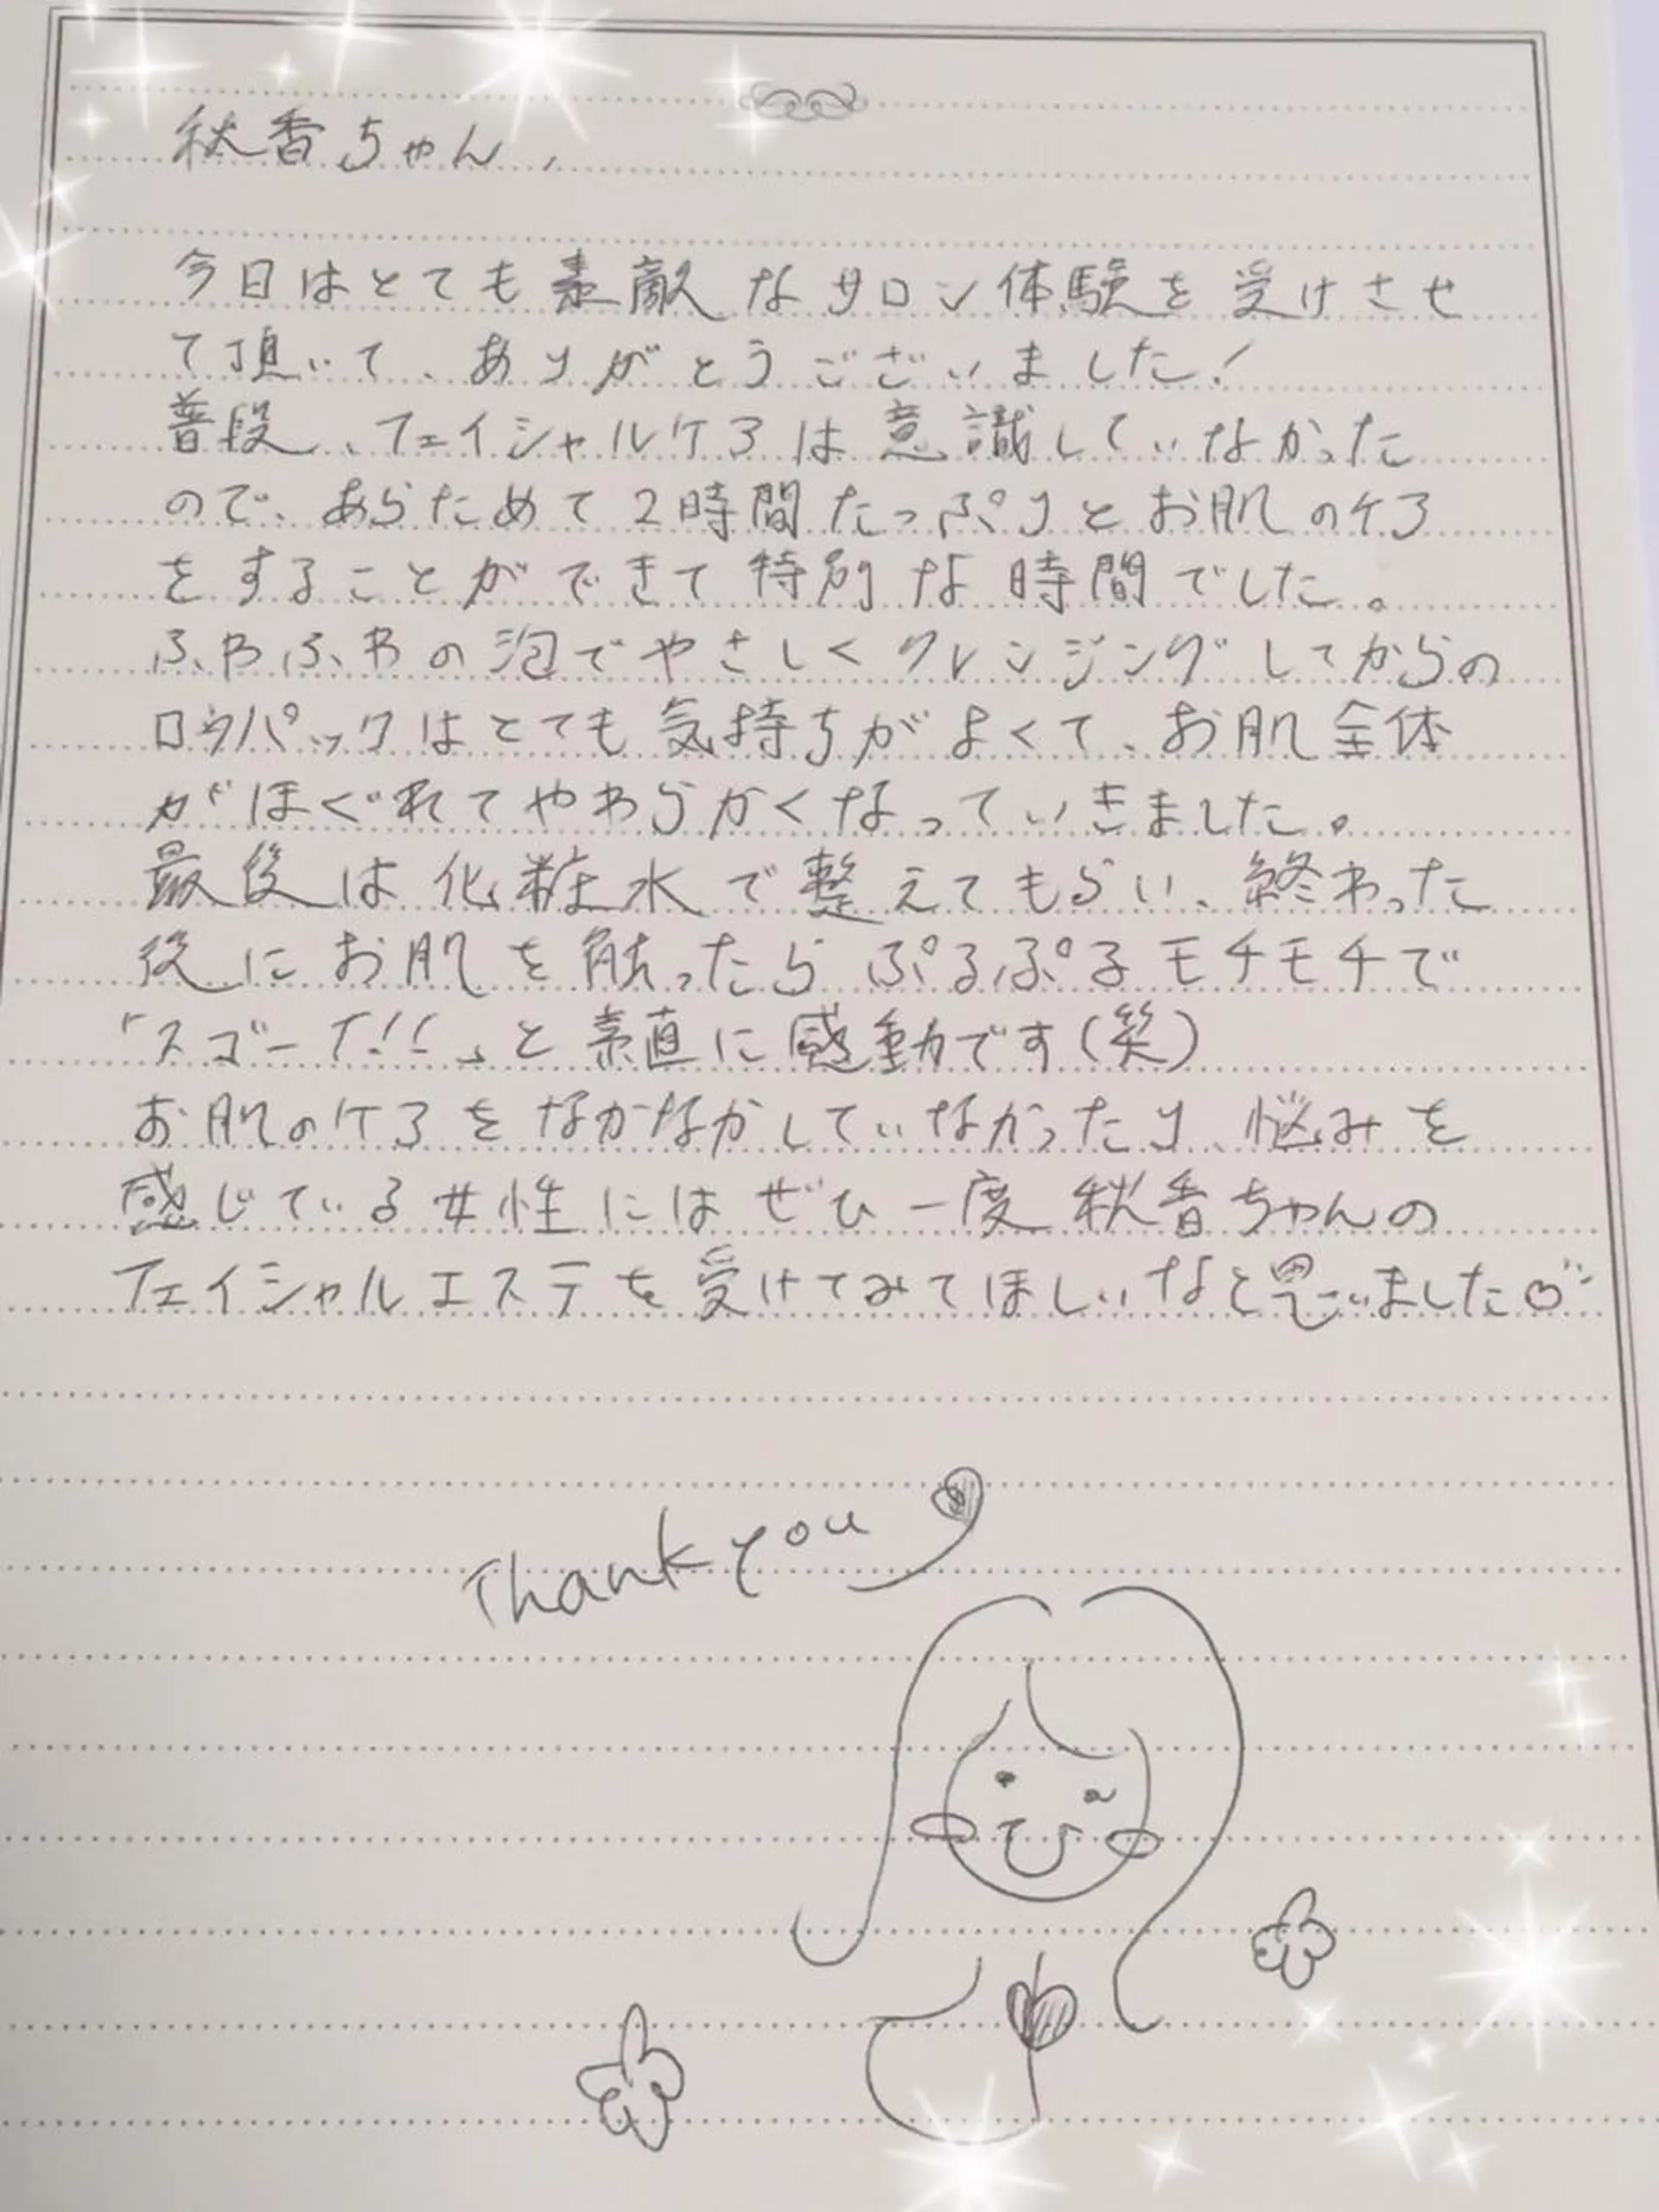 秋香ちゃん、
今日はとても素敵なサロン体験を受けさせ
て頂いて、ありがとうございました!
普段、フェイシャルケアは意識していなかった
ので、あらためて2時間たっぷりとお肌のケア
をすることができて特別な時間でした。
ふわふわの泡でやさしくクレンジングしてからの
ロウパックはとても気持ちがよくて、お肌全体
がほぐれてやわらかくなっていきました。
最後は化粧水で整えてもらい、終わった
後にお肌を触ったらぷるぷるモチモチで
「スゴーイ!!」と素直に感動です(笑)
お肌のケアをなかなかしていなかったり、悩みを
感じている女性にはぜひ一度秋香ちゃんの
フェイシャルエステを受けてみてほしいなと思いました♡
Thank you